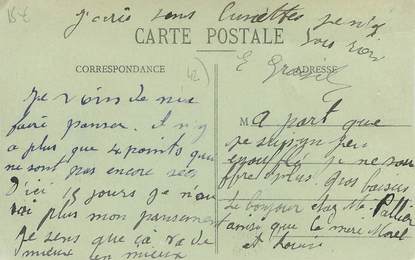 15€
j'écris sans lunettes je n'y
vois rien
CARTE POSTALE
CORRESPONDANCE
ADRESSE
Je viens de me
faire panser. il n'y
a plus que 4 points qui
ne sont pas encore secs
D'ici 15 jours je n'au
rai plus mon pansement
Je sens que ça va de
mieux en mieux
M
a part que
je suis un peu
je ne sou
ffre plus. Gros baisers
Le bonjour chez Me Pallier
ainsi que la mère Morel
et Louise